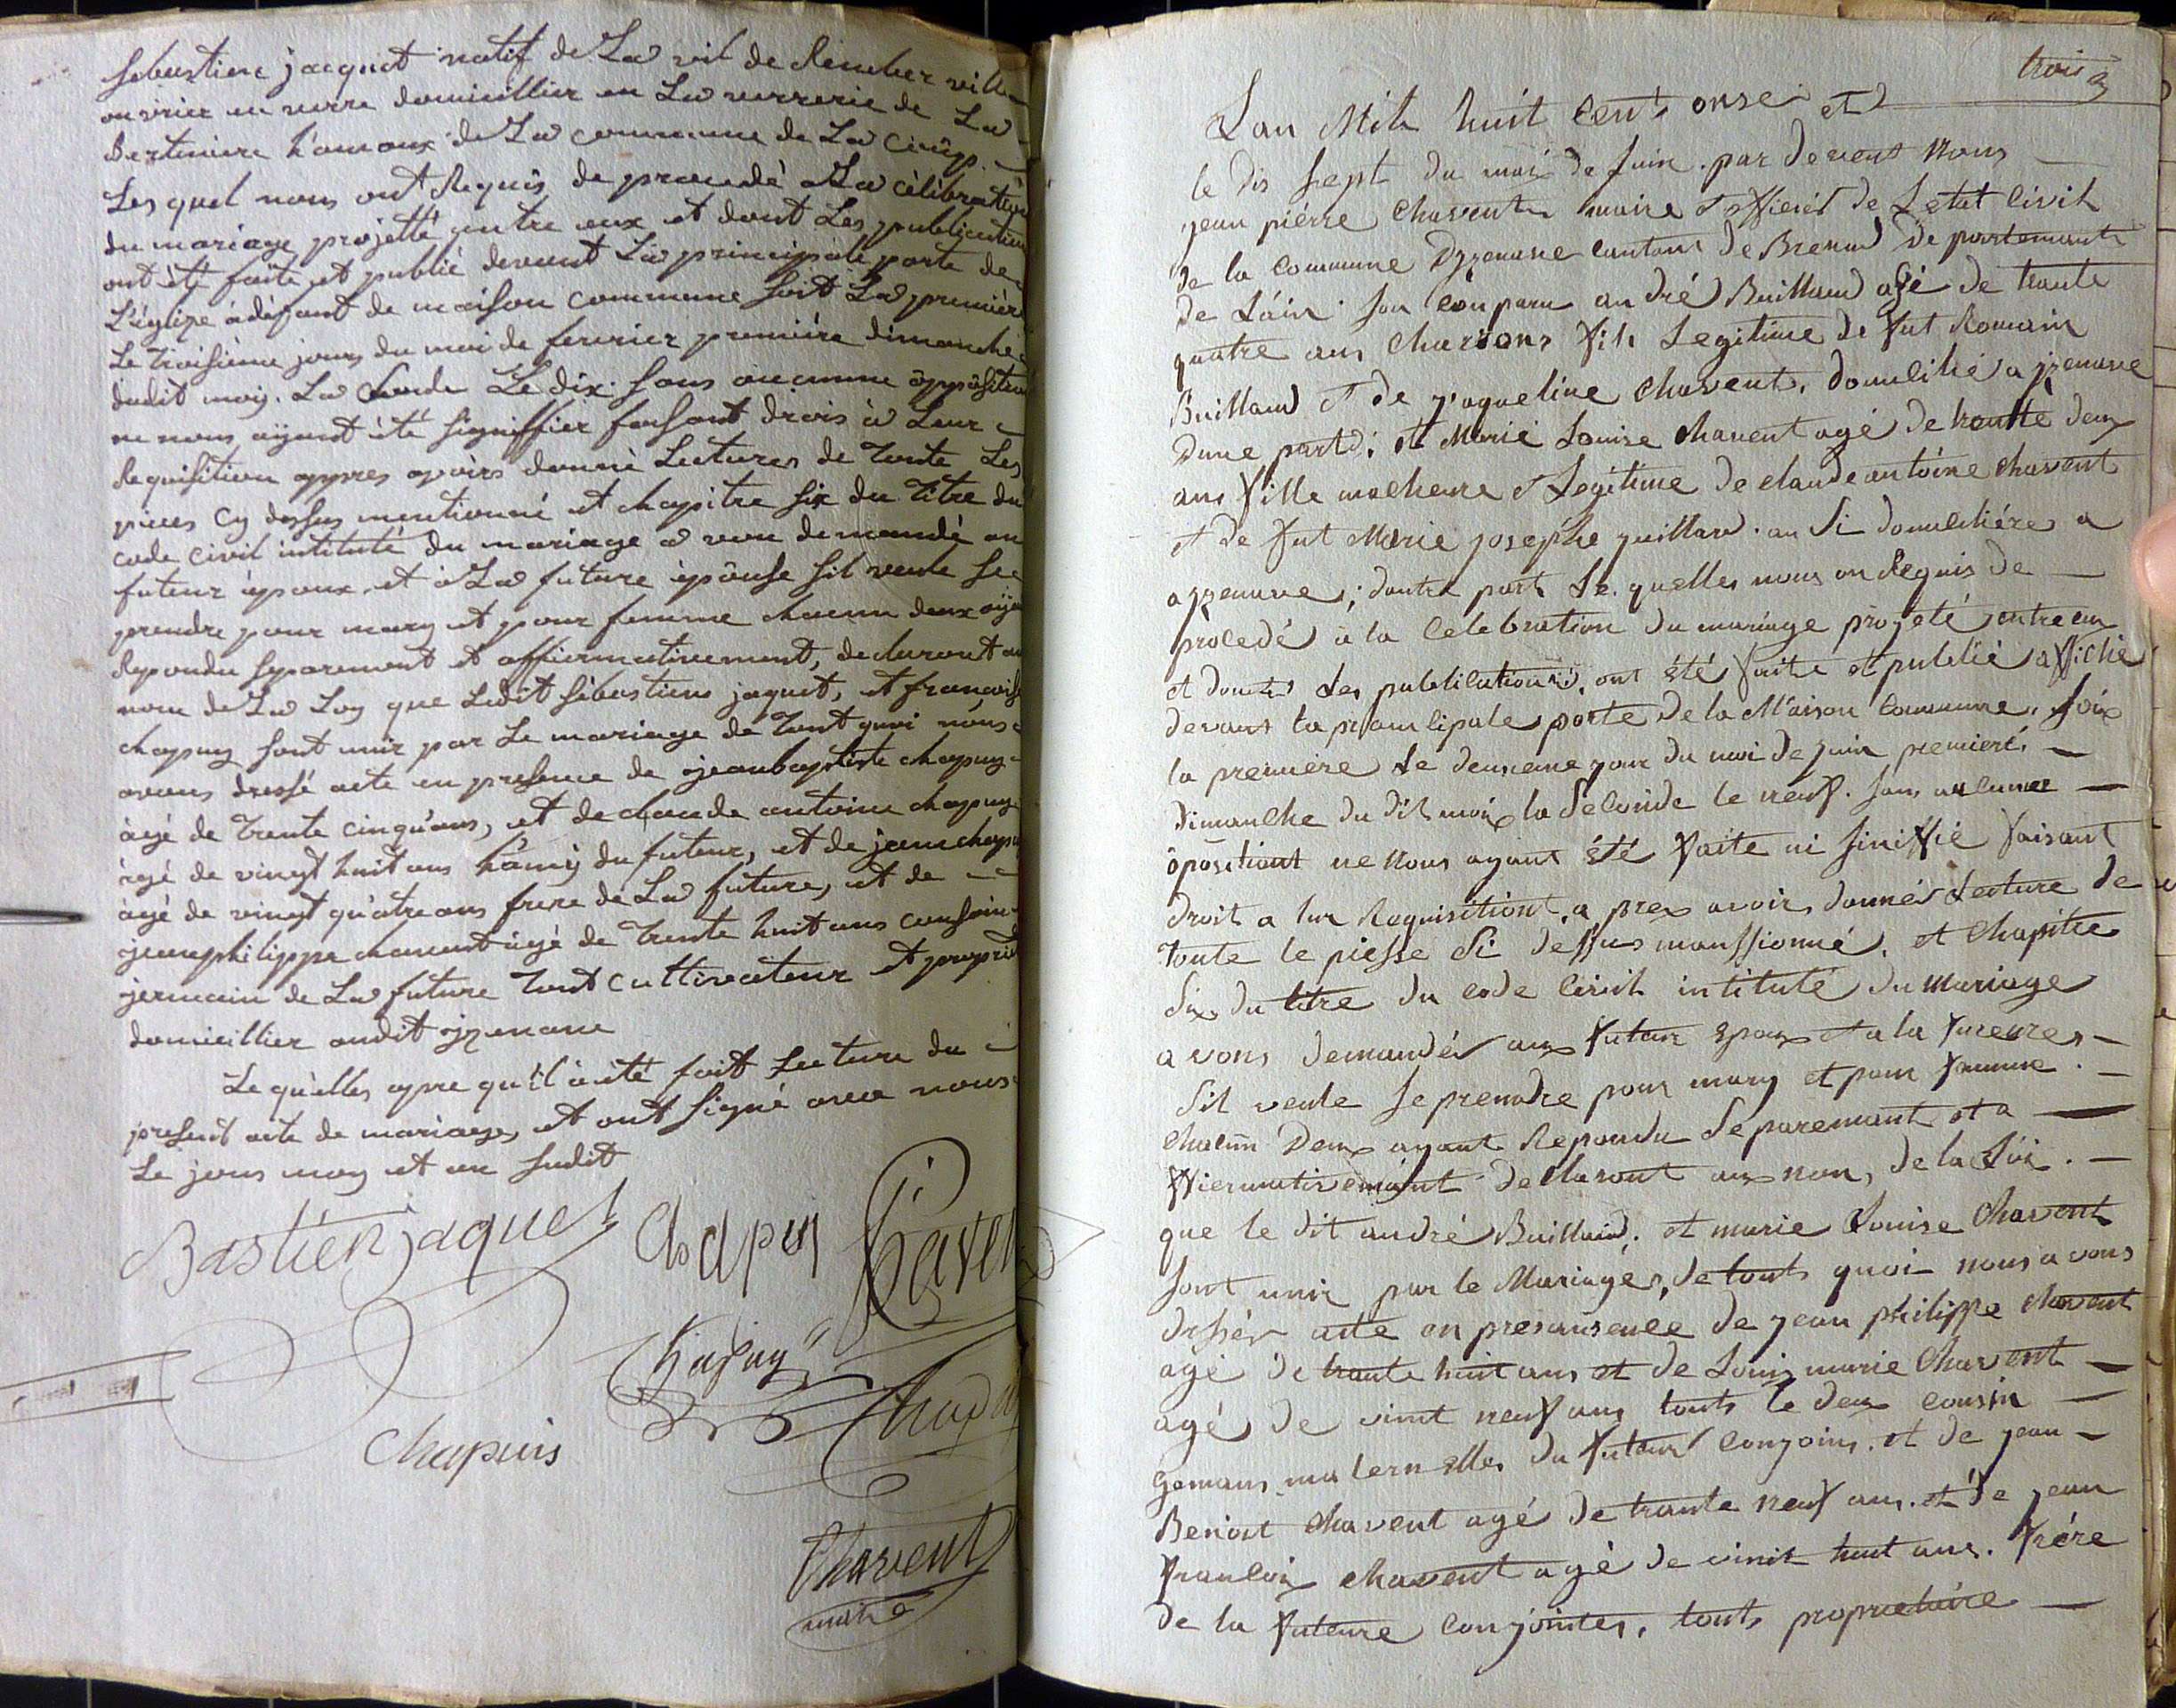 Sebastiene jacquot natif de La vil de
ouvrier en verre domicillier en La verrerie de La
h'amaux de La commune de La
Les quel nous ont Requis de procedé a La célébration
du mariage projetté entre eux et dont Les publication
ont été faite et publié devent La principale porte de
L'églize à défaut de maison commune soit La premiere
Le Troisième jours du moi de fevrier premiére dimanche
dudit moy. La Le dix. sans aucunne oppôsition
ne nous ayant été signiffier faisant drois à Leur
Requisition appres avoirs donné Lectures de toute Les
pieces Cy dessus mentionné et chapitre six du Titre du
code civil intitulé du mariage a von demandé au
futeur époux et à La future épouse sil veule se
prendre pour mary et pour femme chacun deux aÿen
Repondu séparement et affiermativement, declaront au
nom de La Loy que Ledit sébastiens jaquet, et francoise
chapuy sont unir par Le mariage de Tout quoi nous
avons dressé acte en presence de jeanbaptiste chapuy
âgé de Trente cinq ans, et de claude antoine chapuy
âgé de vingt huit ans du futeur, et de jean chapuy
âgé de vingt qu'atre ans frere de La future, et de
jeanphilippe chavent âgé de Trente huit ans cousain
jermain de La future Tout cultivateur et propriét
domicillier audit
Le qu'elles apre qu'il à été fait Lecture du
present acte de mariage, et ont signé avec nous
Le jours moy et an sudit
Bastien jaquet Chapuy Chaven
Chapuy
Chapuis Chapuy
Chavent
maire
trois 3
Lan Mile huit Cents onse et
le dis sept du moi de Juin. par devent Nous
jean piérre Chavent maire et officiér de Letat Civil
de la Commune cantons de Brenod departemant
de Láin son conparu andré Buillaud agé de trante
quatre ans Charrons fils Legitime de fut Romain
Buillaud et de jaqueline Chavent, domilihé a
Dune part; et Marie Louise Chavent agé de trantte deux
ans fille et Legitime de claude antoine Chavent
et de fut Marie josephe au Si a
; dautre part Le quelles nous on Requis de
procedé a la Celebration du mariage projeté entre eux
et dont Les publications, ont été faite et publié affiché
devant la porte de la Maison Commune. Soix
la premiere Le deusieme jour du moi de juin premiere
dimanche du dit mois la Seconde le neuf. Sans
ôpositiont ne Nous ayant été faite ni sinifié faisant
droit a lur Requisitiont, a prex avoir donnés Lecture de
toute le piesse Si dessus manssionné. et chapitre
Six du titre du code Civil intitulé du Mariage
a vons demandér aux futeur epoux et a la
Sil veule se prendre pour mary et pour famme.
chacun Deux ayant Repondu Separemant et a
ffiermativemant declaront aux non, de la Loi.
que le dit andré Buillaud; et marie Louise Chavent
sont unir par le Mariage, de touts quoi nous a vons
drssér acte on de jean philippe chavent
agé de trante huit ans et de Louis marie Chavent
agé de vint neuf ans touts le deux cousin
gemans maternelles du futeur Conjoins. et de jean
Benoit Chavent agé de trante neuf ans. et de jean
francois chavent agé de vinit huit ans. frére
de la futeure Conjointes, touts propriétaire